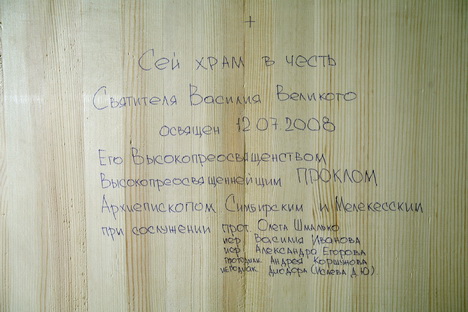 +
Сей храм в честь
Святителя Василия Великого
освящен 12.07.2008
Его Высокопреосвященством
Высокопреосвященнейшим ПРОКЛОМ
Архиепископом Симбирским и Мелекесским
при сослужении прот. Олега Шмалько
иер. Василия Иванова
иер. Александра Егорова
протодиак. Андрея Коршунова
иеродиак. Диодора (Исаева Д.Ю)